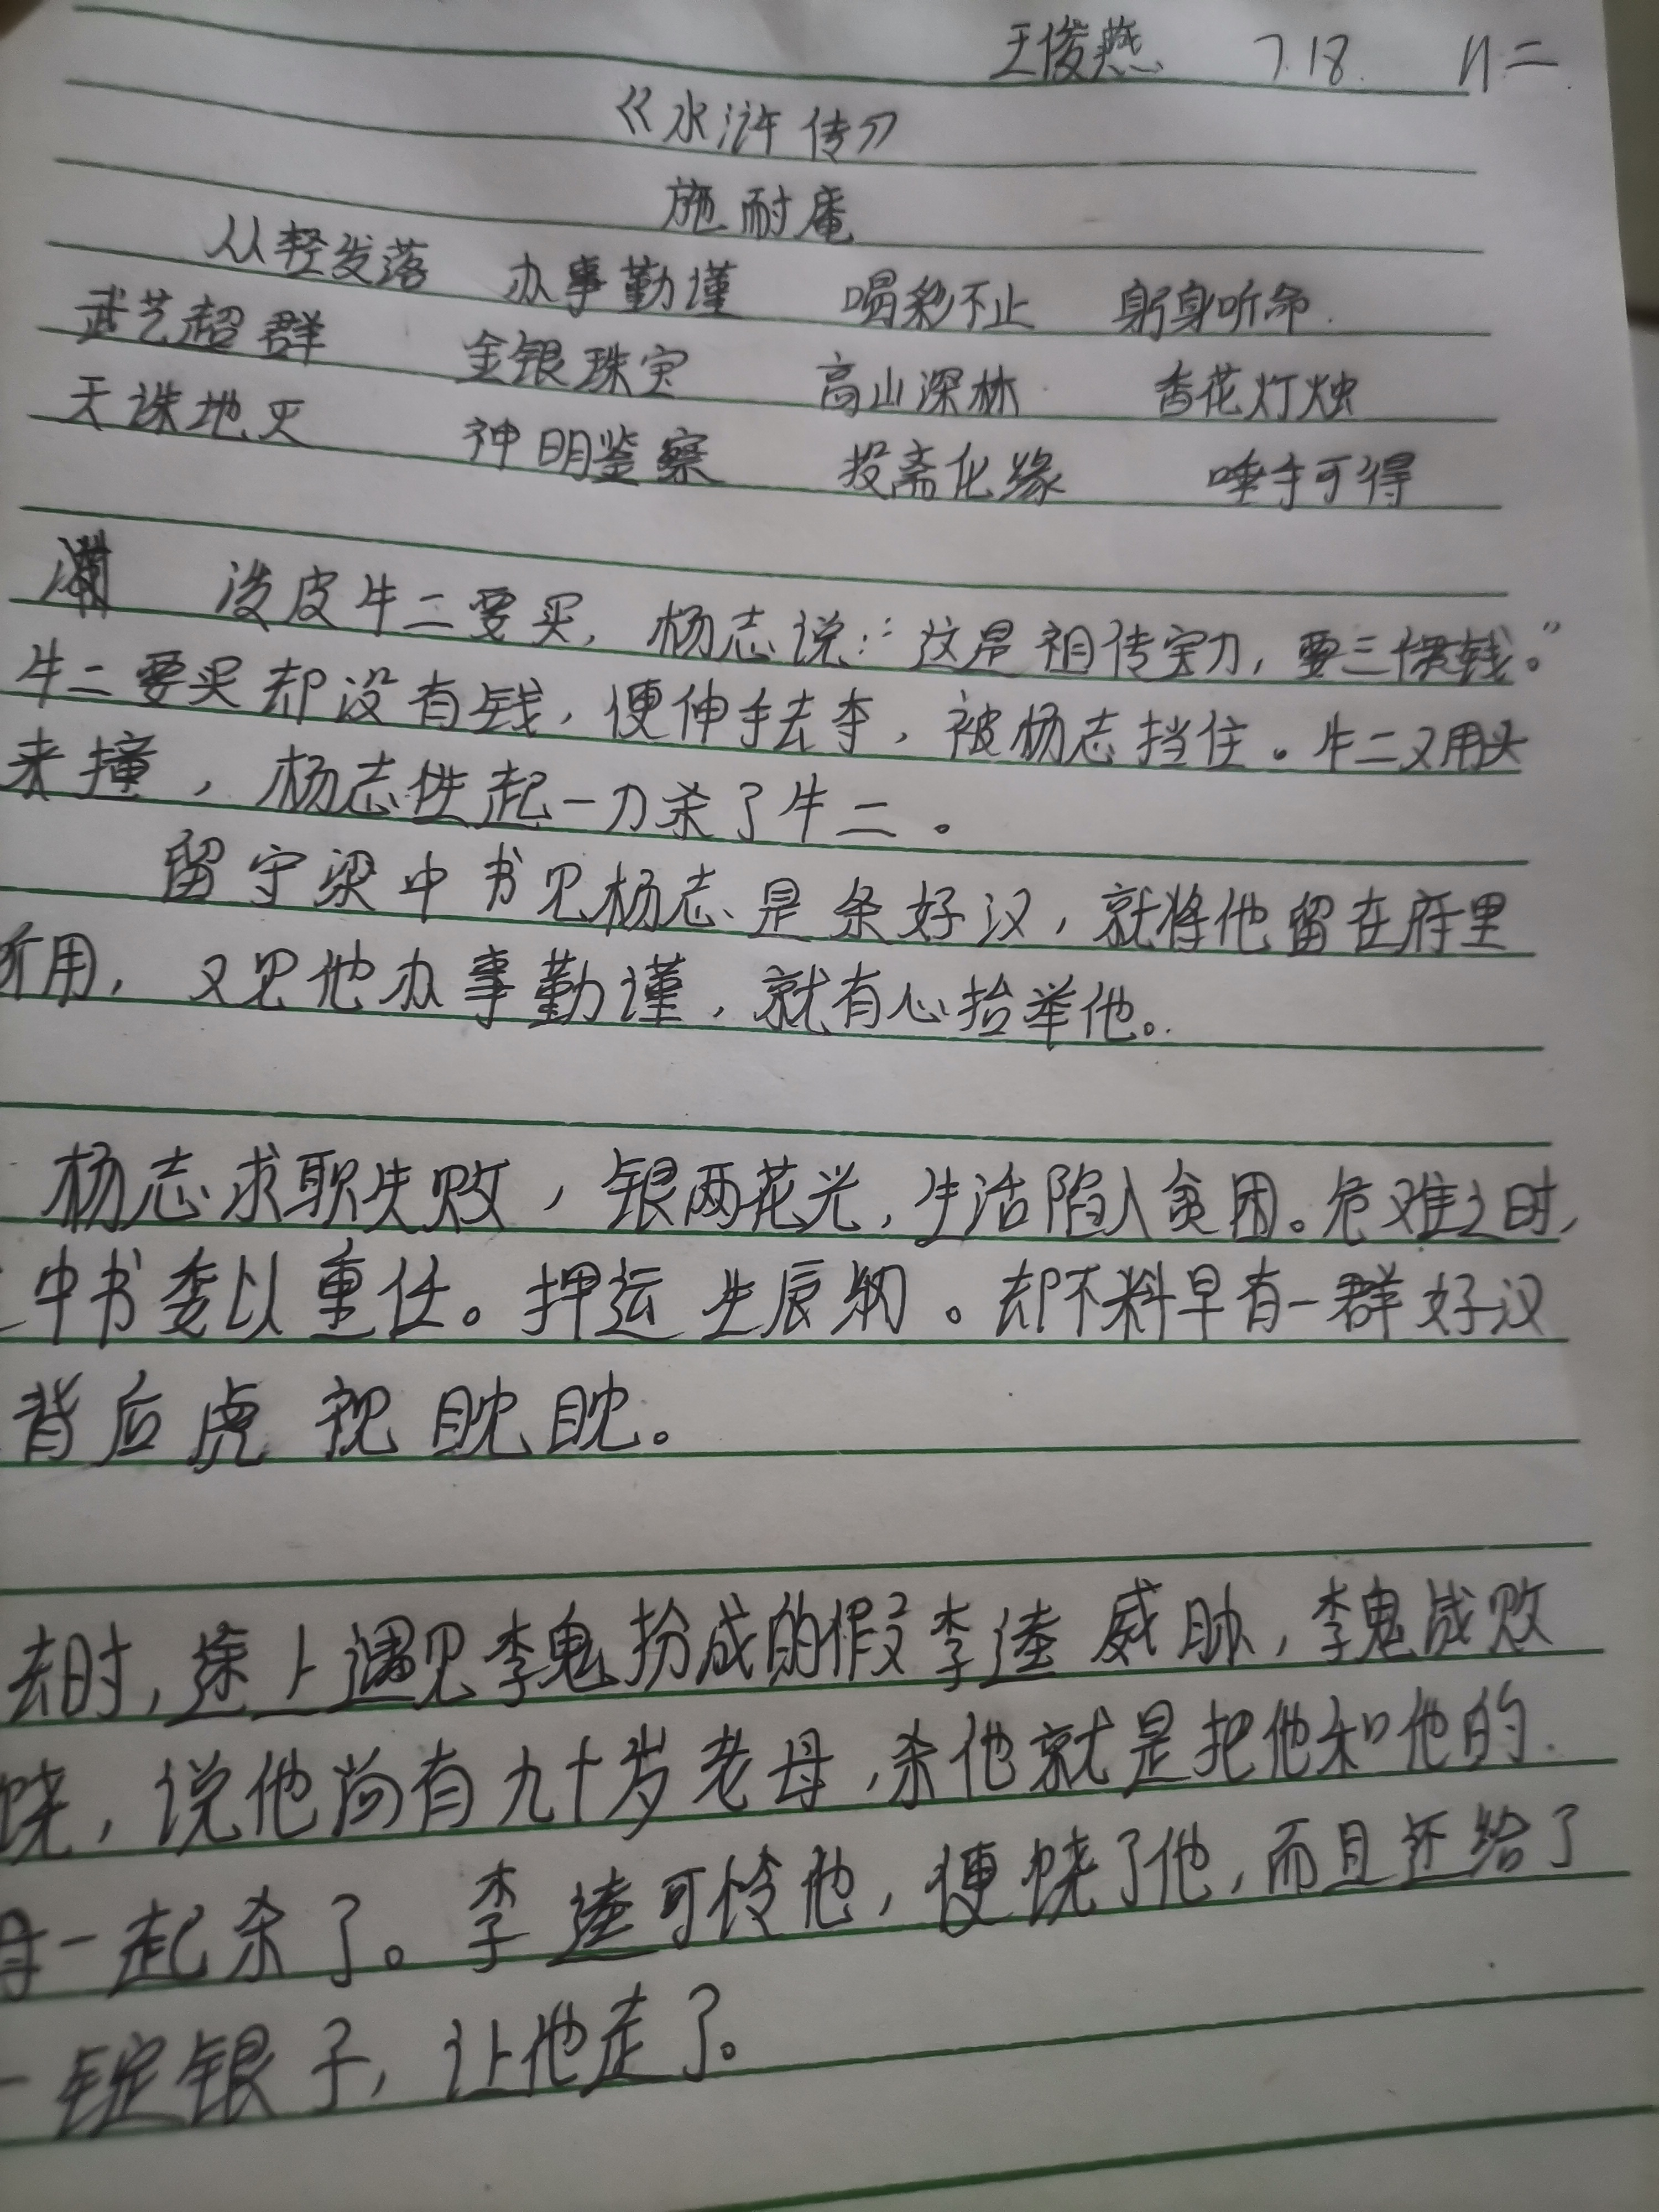 王俊燕 7.18. 八二
《水浒传》
施耐庵
从轻发落 办事勤谨 喝彩不止 躬身听命.
武艺超群 金银珠宝 高山深林 香花灯烛
天诛地灭 神明鉴察 投斋化缘 唾手可得
泼皮牛二要买,杨志说:“这是祖传宝刀,要三千贯钱。”
牛二要买却没有钱,便伸手去夺,被杨志挡住。牛二又用头
来撞,杨志性起一刀杀了牛二。
留守梁中书见杨志是条好汉,就将他留在府里
听用,又见他办事勤谨,就有心抬举他。
杨志求职失败,银两花光,生活陷入贫困。危难之时,
中书委以重任。押运生辰纲。却不料早有一群好汉
背后虎视眈眈。
去时,途上遇见李鬼扮成的假李逵威胁,李鬼战败
饶,说他尚有九十岁老母,杀他就是把他和他的
母一起杀了。李逵可怜他,便饶了他,而且还给了
一锭银子,让他走了。